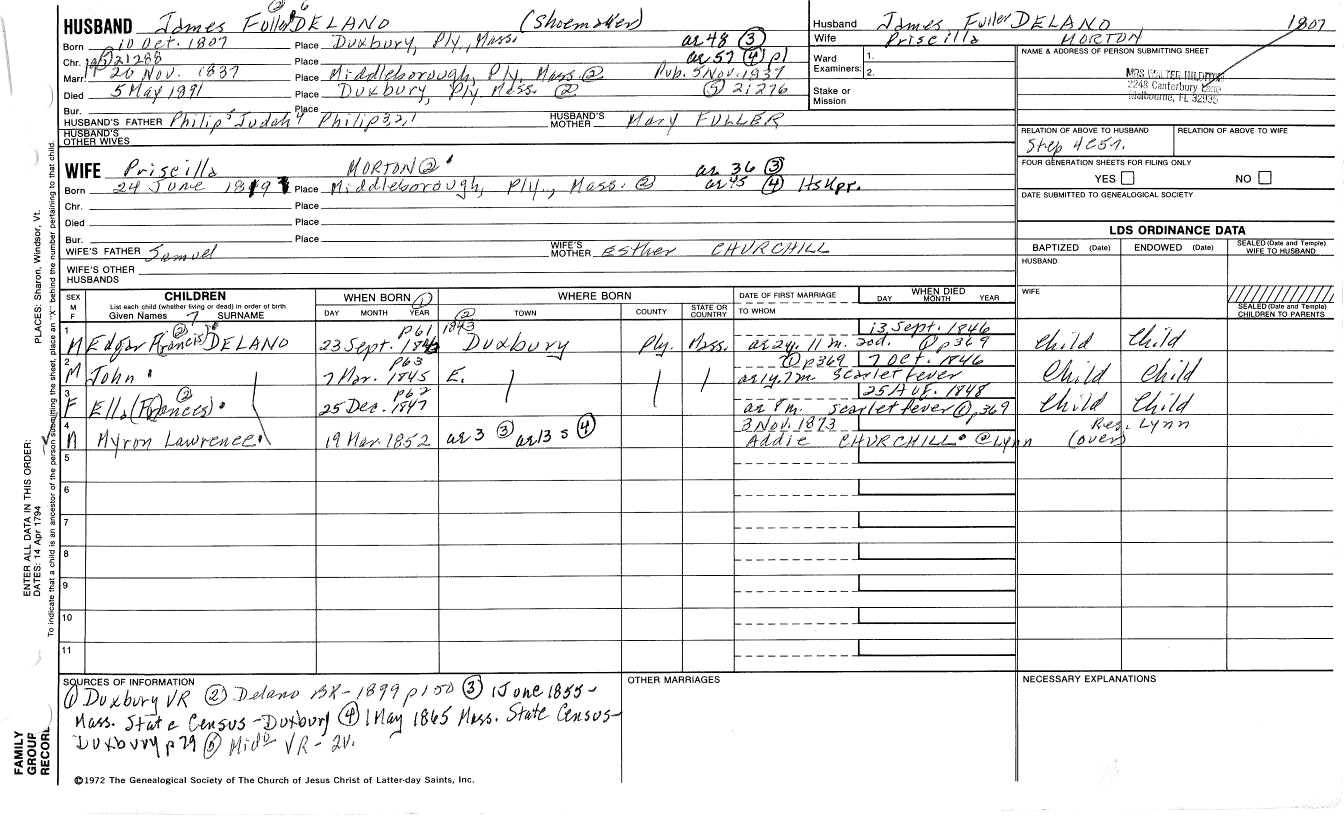 ② 6
HUSBAND James Fuller DELANO (Shoemaker)
Born 10 Oct. 1807 Place Duxbury, Ply, Mass. ar 48 ③
Chr. 21288 Place ar 57 ④ p1
Marr. 26 Nov. 1837 Place Middleborough, Ply, Mass ② Pub. 5 Nov. 1837
Died 5 May 1891 Place Duxbury, Ply Mass. ② ⑤ 21276
Bur. Place
HUSBAND'S FATHER Philip 5 Judah 4 Philip 3,2,1 HUSBAND'S MOTHER Mary FULLER
HUSBAND'S OTHER WIVES
WIFE Priscilla MORTON ② ar 36 ③
Born 24 June Place Middleborough, Ply., Mass. ② ar 45 ④ HsKpr.
Chr. Place
Died Place
Bur. Place
WIFE'S FATHER Samuel WIFE'S MOTHER Esther CHURCHILL
WIFE'S OTHER HUSBANDS
Husband James Fuller DELANO 1807
Wife Priscilla MORTON
Ward Examiners: 1.
2.
Stake or Mission
NAME & ADDRESS OF PERSON SUBMITTING SHEET
MRS WALTER
2248 Canterbury Lane
Melbourne, FL 32935
RELATION OF ABOVE TO HUSBAND RELATION OF ABOVE TO WIFE
Step 4C5r.
FOUR GENERATION SHEETS FOR FILING ONLY
YES NO
DATE SUBMITTED TO GENEALOGICAL SOCIETY
LDS ORDINANCE DATA
BAPTIZED (Date) ENDOWED (Date) SEALED (Date and Temple) WIFE TO HUSBAND
HUSBAND
WIFE
SEALED (Date and Temple) CHILDREN TO PARENTS
SEX M F CHILDREN List each child (whether living or dead) in order of birth Given Names 7 SURNAME
WHEN BORN ① DAY MONTH YEAR
WHERE BORN ② TOWN COUNTY STATE OR COUNTRY
DATE OF FIRST MARRIAGE TO WHOM
WHEN DIED DAY MONTH YEAR
1 M Edgar (Francis) ② DELANO 23 Sept. p61 1843 Duxbury Ply. Mass. ar 2y. 11 m. 20d. 13 Sept. 1846 ① p369 Child Child
2 M John 7 Mar. 1845 p63 E. ① p369 7 Oct. 1846 ar 1y. 7m. Scarlet fever Child Child
3 F Ella (Frances) ② 25 Dec. 1847 p62 25 Aug. 1848 ar 8m. Scarlet fever ① p369 Child Child
4 M Myron Lawrence 19 Mar. 1852 ar 3 ③ ar 13 s ④ 3 Nov. 1873 Addie CHURCHILL @ Lynn Res. Lynn (over)
5
6
7
8
9
10
11
SOURCES OF INFORMATION
① Duxbury VR ② Delano BK-1899 p150 ③ 1 June 1855-
Mass. State Census-Duxbury ④ 1 May 1865 Mass. State Census-
Duxbury p29 ⑤ Mid VR-2v.
OTHER MARRIAGES
NECESSARY EXPLANATIONS
©1972 The Genealogical Society of The Church of Jesus Christ of Latter-day Saints, Inc.
FAMILY GROUP RECORD
ENTER ALL DATA IN THIS ORDER:
DATES: 14 Apr 1794
PLACES: Sharon, Windsor, Vt.
To indicate that a child is an ancestor of the person submitting the sheet, place an "X" behind the number pertaining to that child.